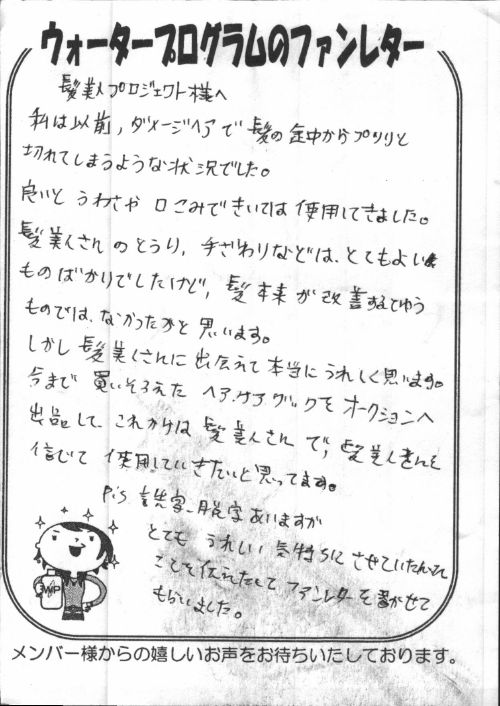 ウォータープログラムのファンレター
髪美人プロジェクト様へ
私は以前，ダメージヘアで髪の途中からプツリと
切れてしまうような状況でした。
良いとうわさや口こみできいては使用してきました。
髪美人さんのとうり，手ざわりなどは、とてもよい
ものばかりでしたけど，髪本来が改善するてゆう
ものでは、なかったかと思います。
しかし髪美人さんに出伝えて本当にうれしく思います。
今まで買いそろえたヘアケアグッズをオークションへ
出品して、これからは髪美人さんで，髪美人さんを
信じて使用していきたいと思ってます。
P.S 誤字脱字ありますが
とてもうれしい気持ちにさせていただいた
ことを伝えたくてファンレターを書かせて
もらいました。
WP
メンバー様からの嬉しいお声をお待ちいたしております。